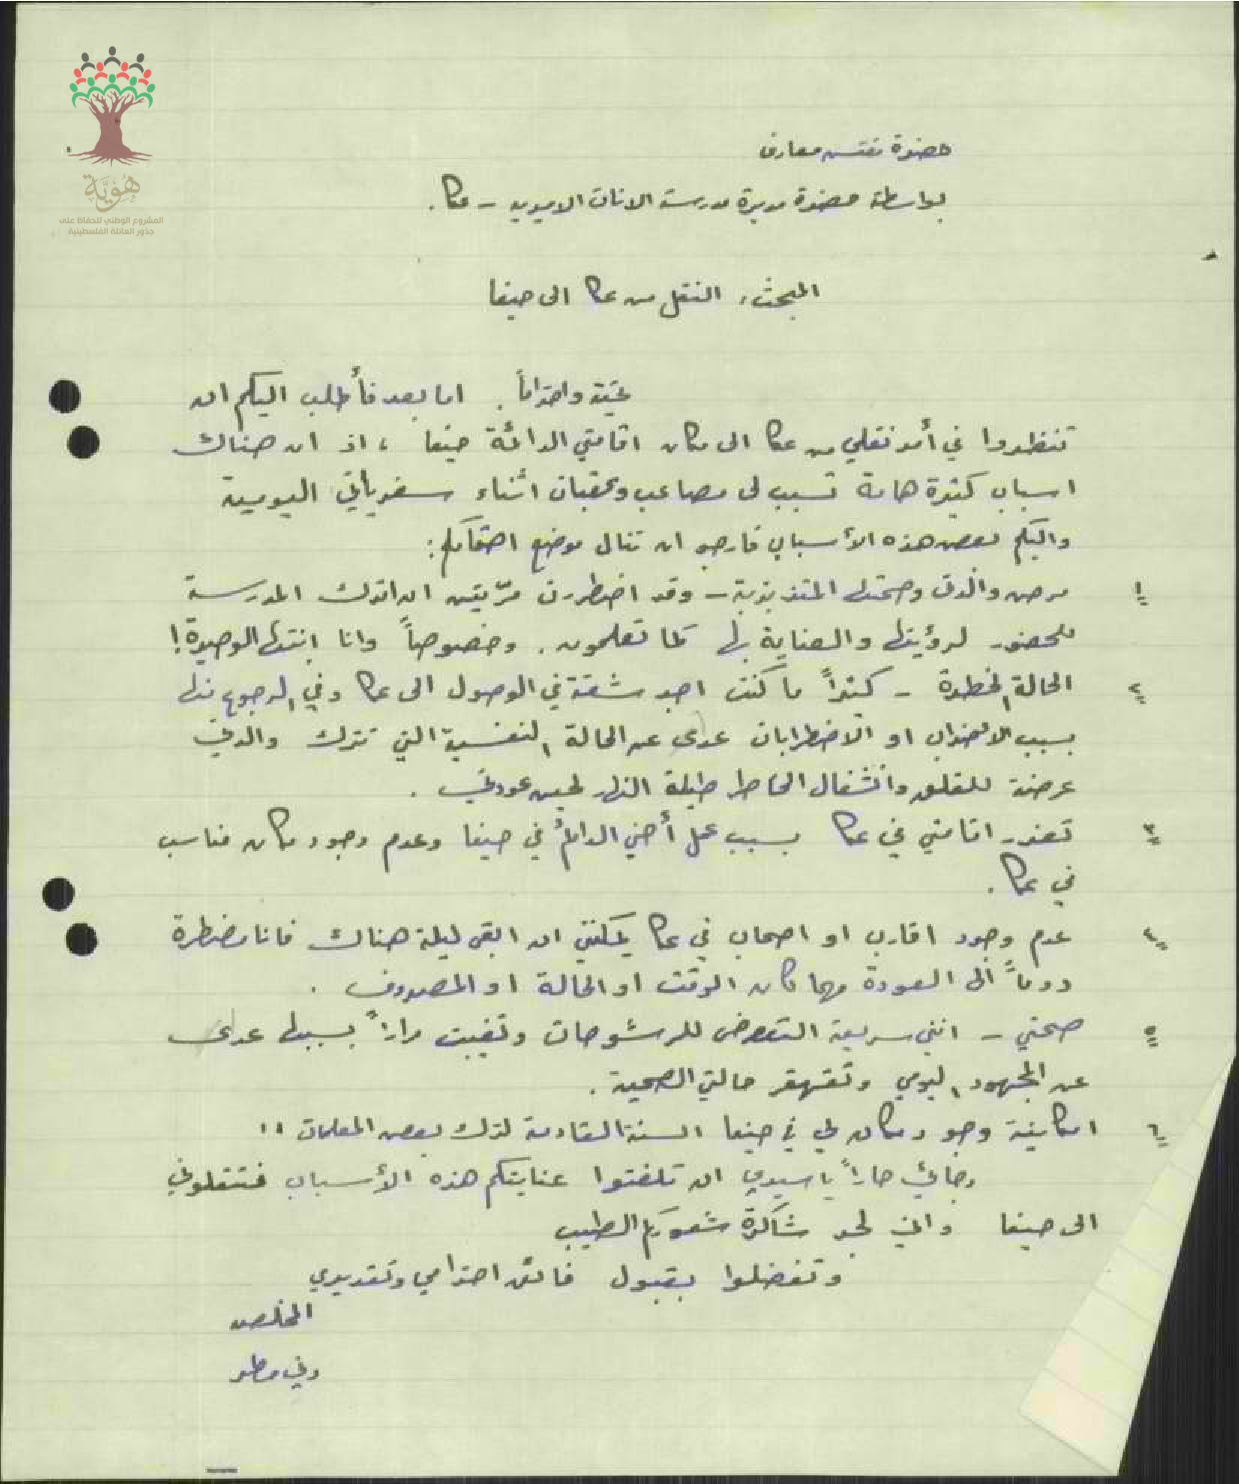 هُوِيَّة
المشروع الوطني للحفاظ على
جذور العائلة الفلسطينية
حضرة مفتش معارف
بواسطة حضرة مديرة مدرسة الاناث الاميرية – عكا.
المبحث، النقل من عكا الى حيفا
تحية واحتراماً. اما بعد فأطلب اليكم ان
تنظروا في أمر نقلي من عكا الى مكان اقامتي الدائمة حيفا ، اذ ان هناك
اسباب كثيرة هامة تسبب لي مصاعب وعقبات اثناء سفرياتي اليومية
واليكم بعض هذه الأسباب فارجو ان تنال موضع اهتمامكم:
١ مرض والدتي وصحتها المتذبذبة – وقد اضطررت مرّتين ان اترك المدرسة
للحضور لرؤيتها والعناية بها كما تعلمون. وخصوصاً وانا ابنتها الوحيدة!
٢ الحالة الخطرة – كثيراً ما كنت اجد مشقة في الوصول الى عكا وفي الرجوع منها
بسبب الاضراب او الاضطرابات عدى عن الحالة النفسية التي تترك والدتي
عرضة للقلق وانشغال الخاطر طيلة النهار لحين عودتي .
٣ تعذر اقامتي في عكا بسبب عمل أخي الدائم في حيفا وعدم وجود مكان مناسب
في عكا.
٤ عدم وجود اقارب او اصحاب في عكا يمكنني ان ابقى ليلة هناك فانا مضطرة
دوماً الى العودة مهما كان الوقت او الحالة او المصروف .
٥ صحتي – انني سريعة التعرض للرشوحات وتغيبت مراراً بسببها عدى
عن المجهود اليومي وتقهقر حالتي الصحية .
٦ امكانية وجود مكان لي في حيفا السنة القادمة لترك بعض المعلمات !!
رجائي حاراً يا سيدي ان تلفتوا عنايتكم هذه الأسباب فتنقلوني
الى حيفا واني لجد شاكرة شعوركم الطيب
وتفضلوا بقبول فائق احترامي وتقديري
المخلصة
مطر